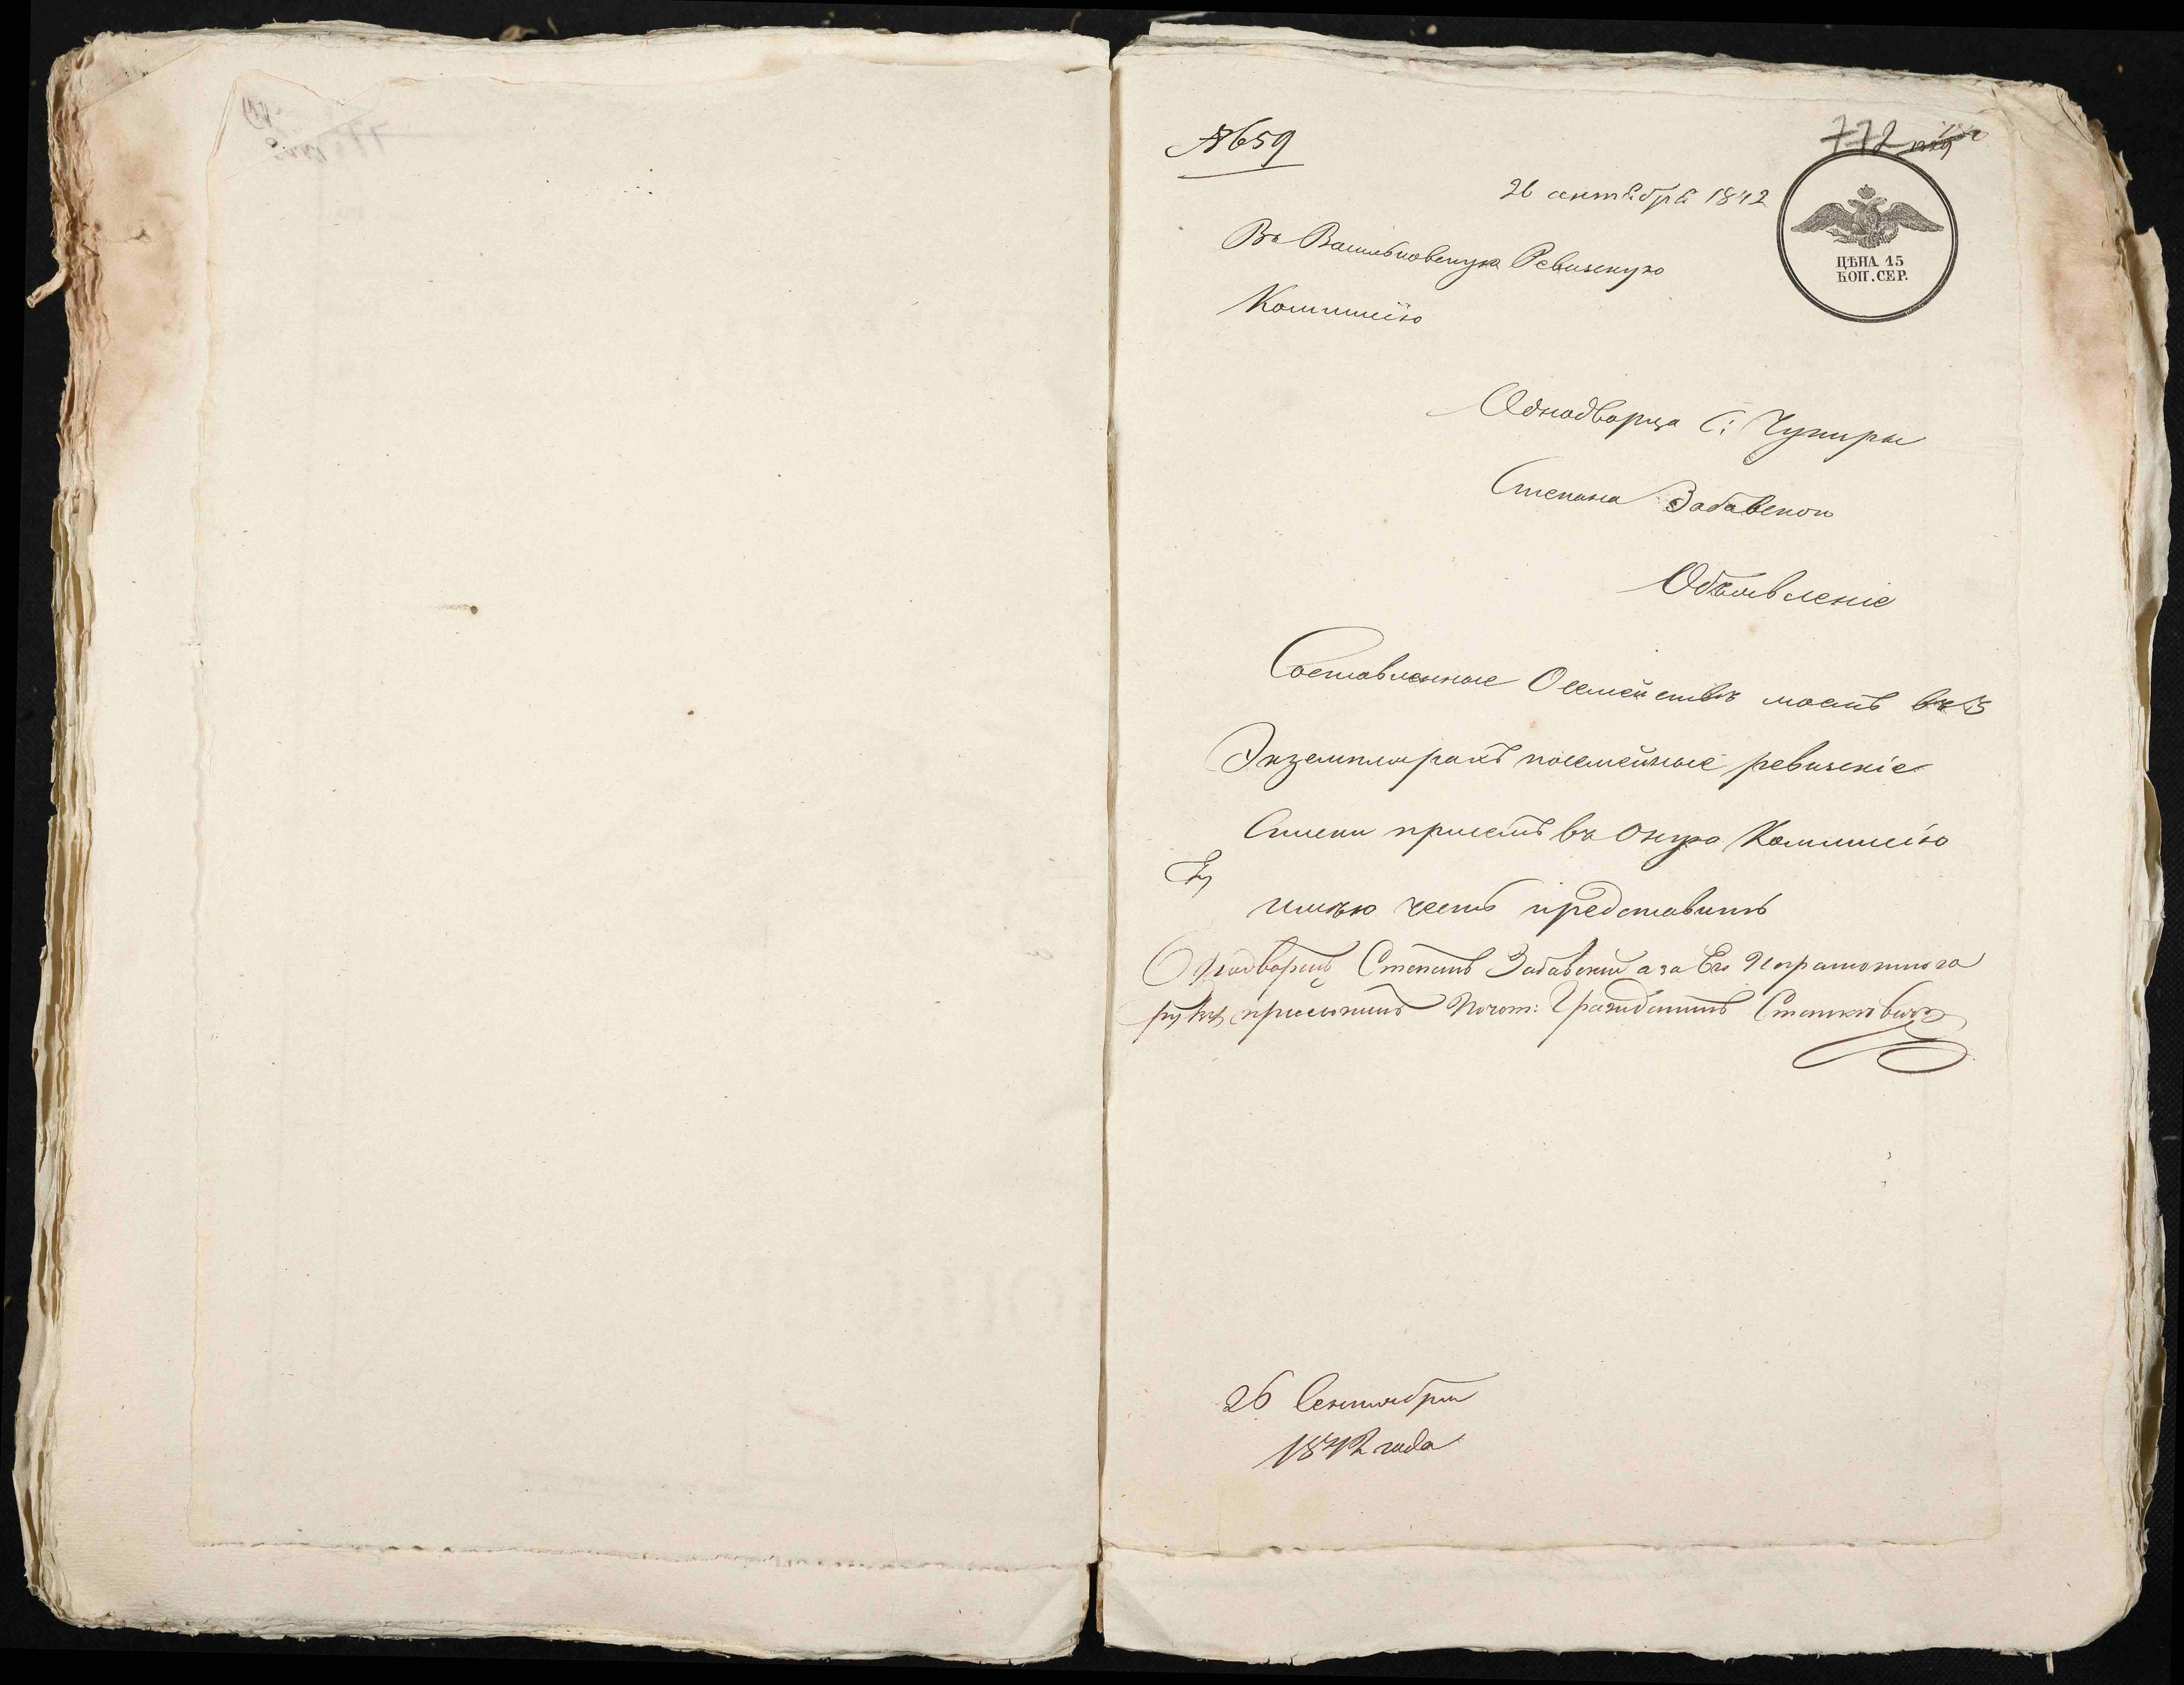 № 659
772
26 сентября 1842
ЦѢНА 15
КОП. СЕР.
Въ Васильковскую Ревизскую
Коммисію
Однодворца С: Чупиры
Степана Забавскои
Объявленіе
Составленные О семействѣ моемъ въ 3
Экземплярахъ посемейные ревизскіе
Списки при семъ въ Оную Коммисію
имѣю честь представить
Однодворецъ Степанъ Забавский а за Его Неграмотного
руку приложилъ Почот: Гражданинъ Станкевичъ
26 Сентября
1842 года